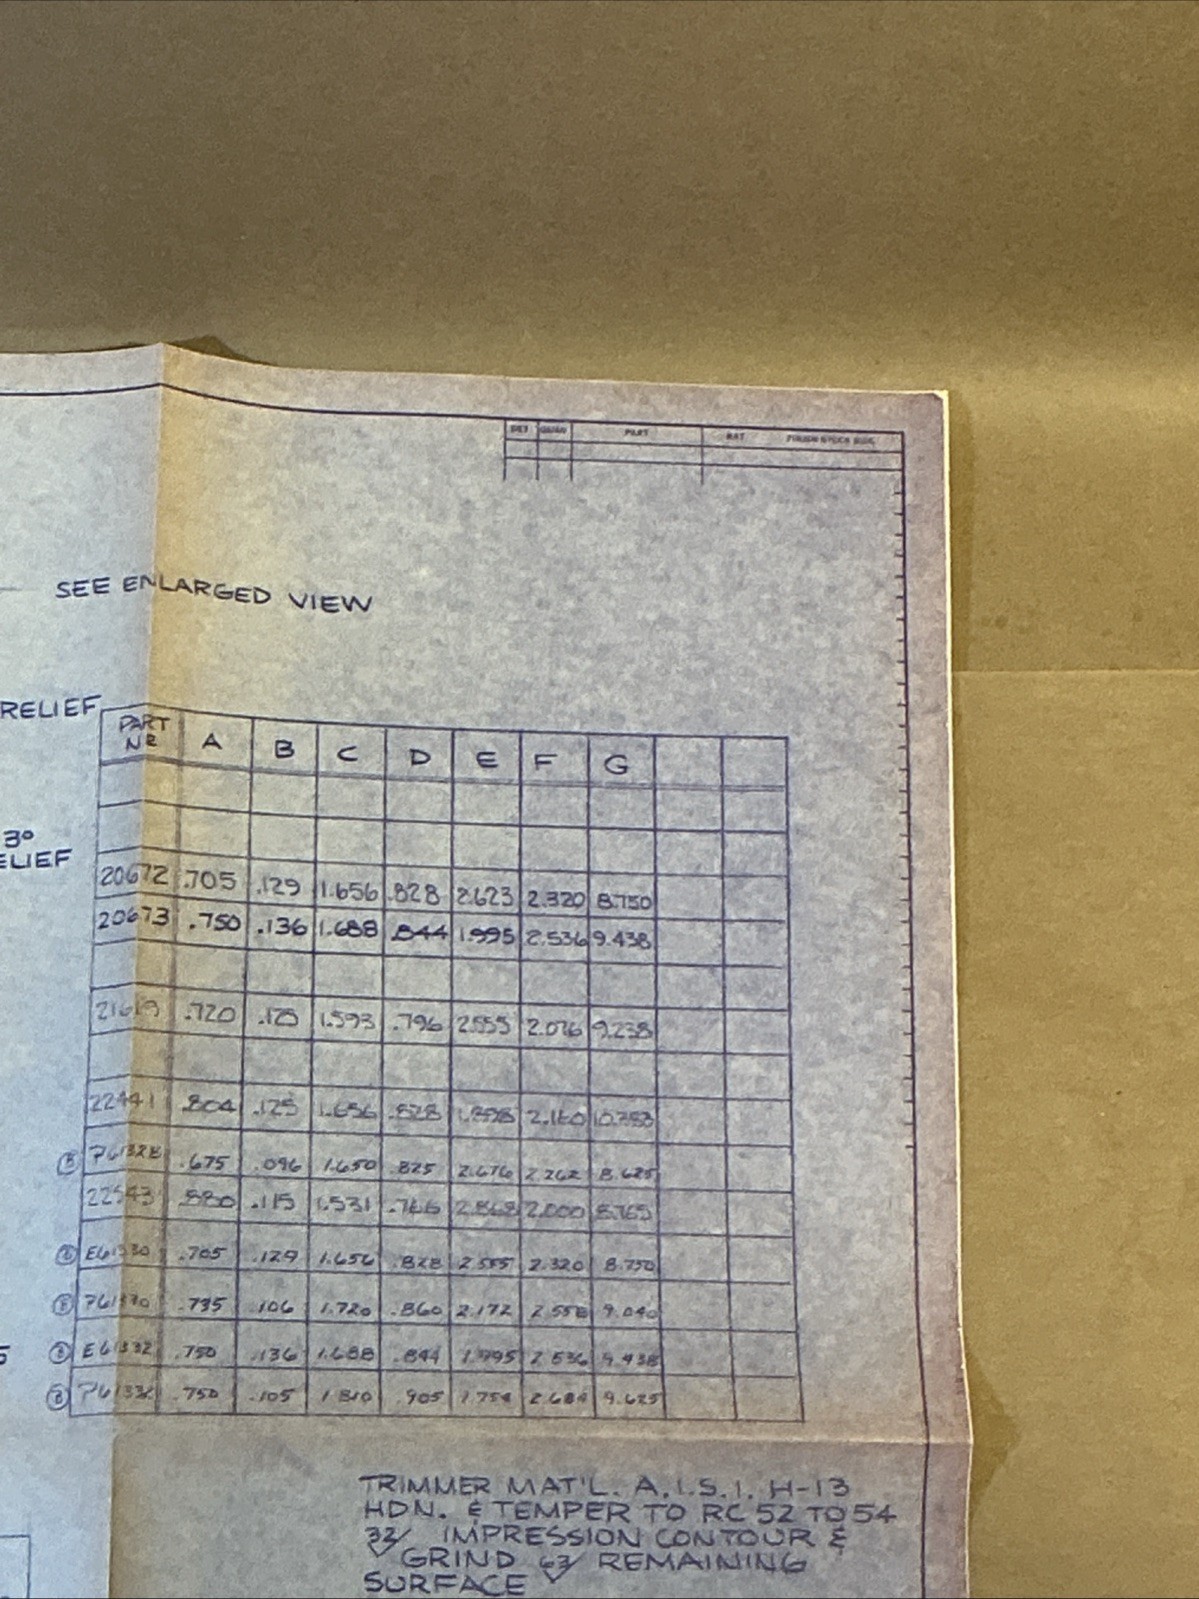 PART
SEE ENLARGED VIEW
RELIEF
3°
ELIEF
PART NR A B C D E F G
20672 .705 .129 1.656 .828 2.623 2.320 8.750
20673 .750 .136 1.688 .844 1.995 2.536 9.438
21619 .720 .125 1.593 .796 2.555 2.076 9.238
22441 .804 .125 1.656 .828 2.160
.675 .096 1.650 .825 2.676 2.262 8.625
22543 .880 .115 1.531 .766 2.868 2.000 8.765
E61330 .705 .129 1.656 .828 2.555 2.320 8.750
.735 .106 1.720 .860 2.172 2.558 9.040
5
E61332 .750 .136 1.688 .844 1.995 2.536 9.438
.750 .105 1.810 .905 1.754 2.684 9.625
TRIMMER MAT'L. A.I.S.I. H-13
HDN. & TEMPER TO RC 52 TO 54
32/ IMPRESSION CONTOUR &
GRIND 63/ REMAINING
SURFACE